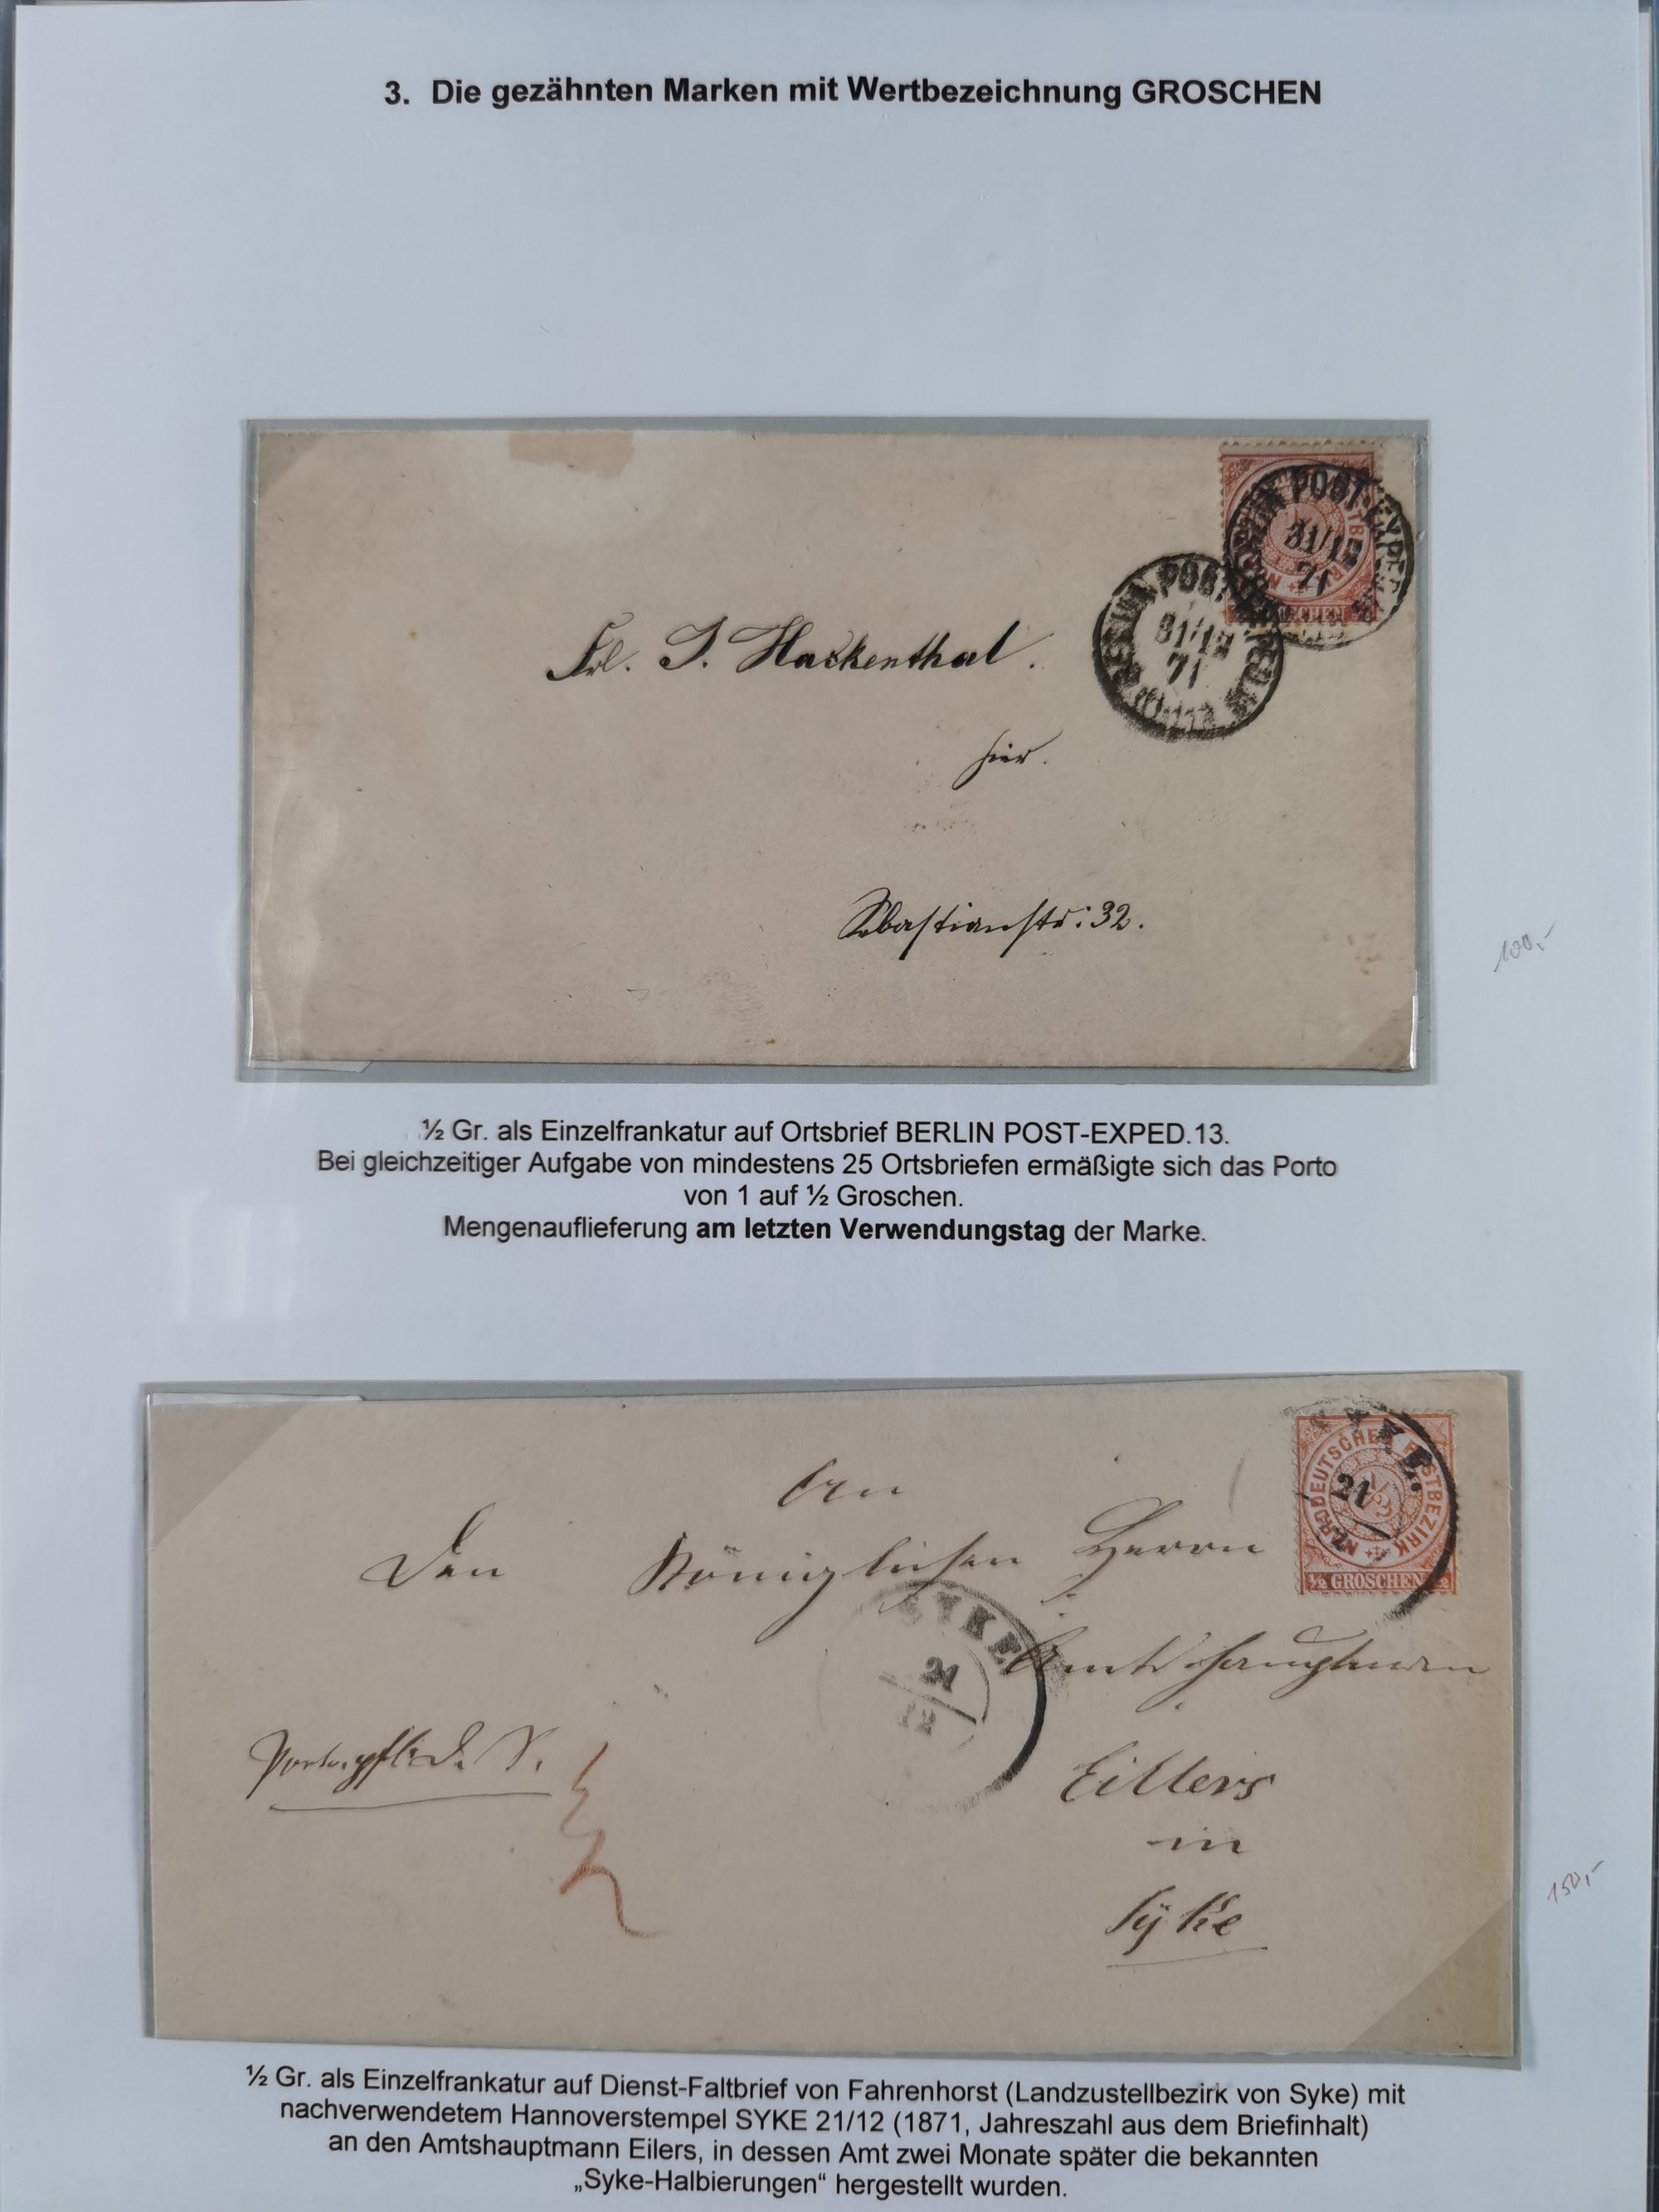 3. Die gezähnten Marken mit Wertbezeichnung GROSCHEN
BERLIN POST-EXPED.
31/12
71
BERLIN POST
31/12
71
Frl. J. Hackenthal.
hier.
Sebastianstr: 32.
100,-
½ Gr. als Einzelfrankatur auf Ortsbrief BERLIN POST-EXPED.13.
Bei gleichzeitiger Aufgabe von mindestens 25 Ortsbriefen ermäßigte sich das Porto
von 1 auf ½ Groschen.
Mengenauflieferung am letzten Verwendungstag der Marke.
NORDDEUTSCHER POSTBEZIRK
½
½ GROSCHEN ½
SYKE.
21
An
Den Königlichen Herrn
Amtshauptmann
SYKE
21
12
Portopfl. D. S.
Eillers
in
Syke
150,-
½ Gr. als Einzelfrankatur auf Dienst-Faltbrief von Fahrenhorst (Landzustellbezirk von Syke) mit
nachverwendetem Hannoverstempel SYKE 21/12 (1871, Jahreszahl aus dem Briefinhalt)
an den Amtshauptmann Eilers, in dessen Amt zwei Monate später die bekannten
„Syke-Halbierungen“ hergestellt wurden.